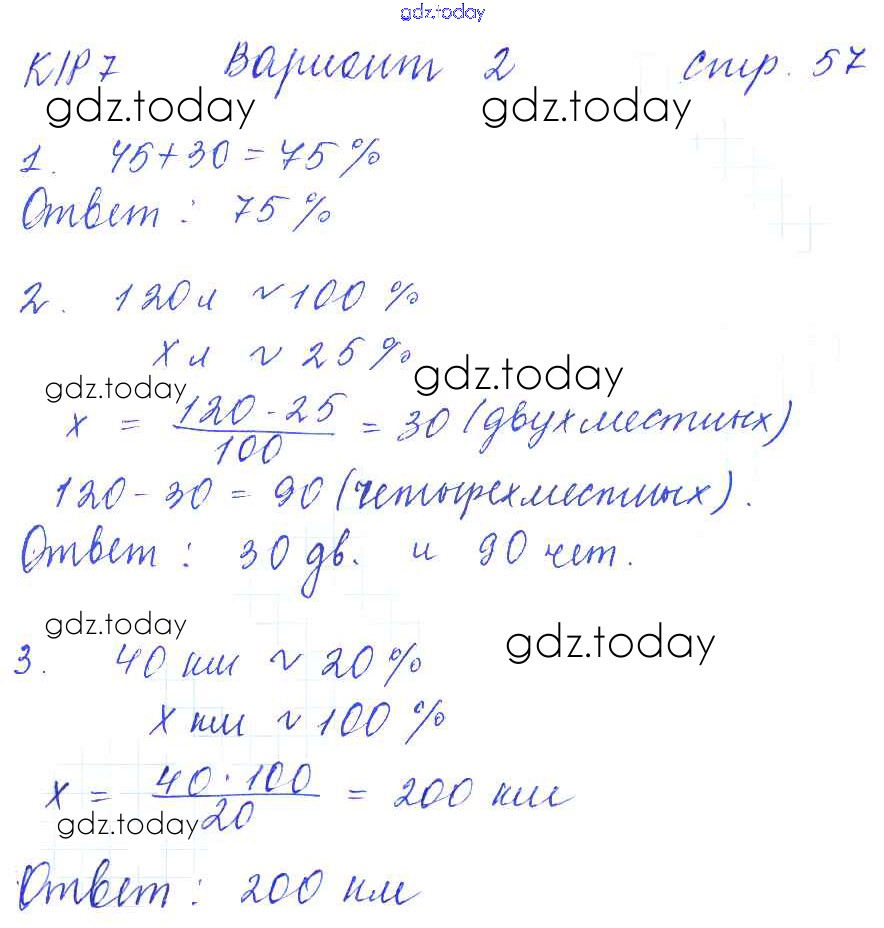 gdz.today
К/Р 7 Вариант 2 стр. 57
gdz.today gdz.today
1. 45+30 = 75%
Ответ: 75%
2. 120 л ~ 100%
х л ~ 25%
gdz.today gdz.today
х = 120 · 25 / 100 = 30 (двухместных)
120 - 30 = 90 (четырехместных).
Ответ: 30 дв. и 90 чет.
gdz.today gdz.today
3. 40 км ~ 20%
х км ~ 100%
х = 40 · 100 / 20 = 200 км
gdz.today
Ответ: 200 км